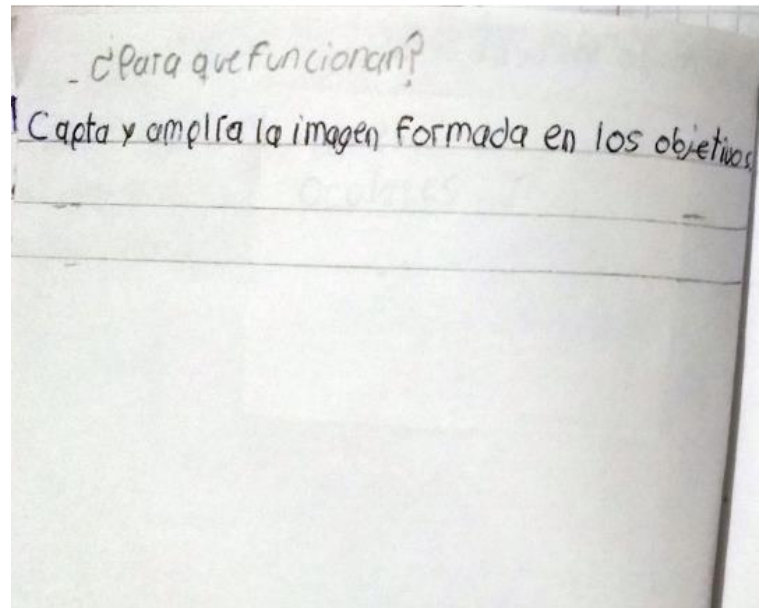 - ¿Para que funcionan?
Capta y amplía la imagen formada en los objetivos.
Oculares